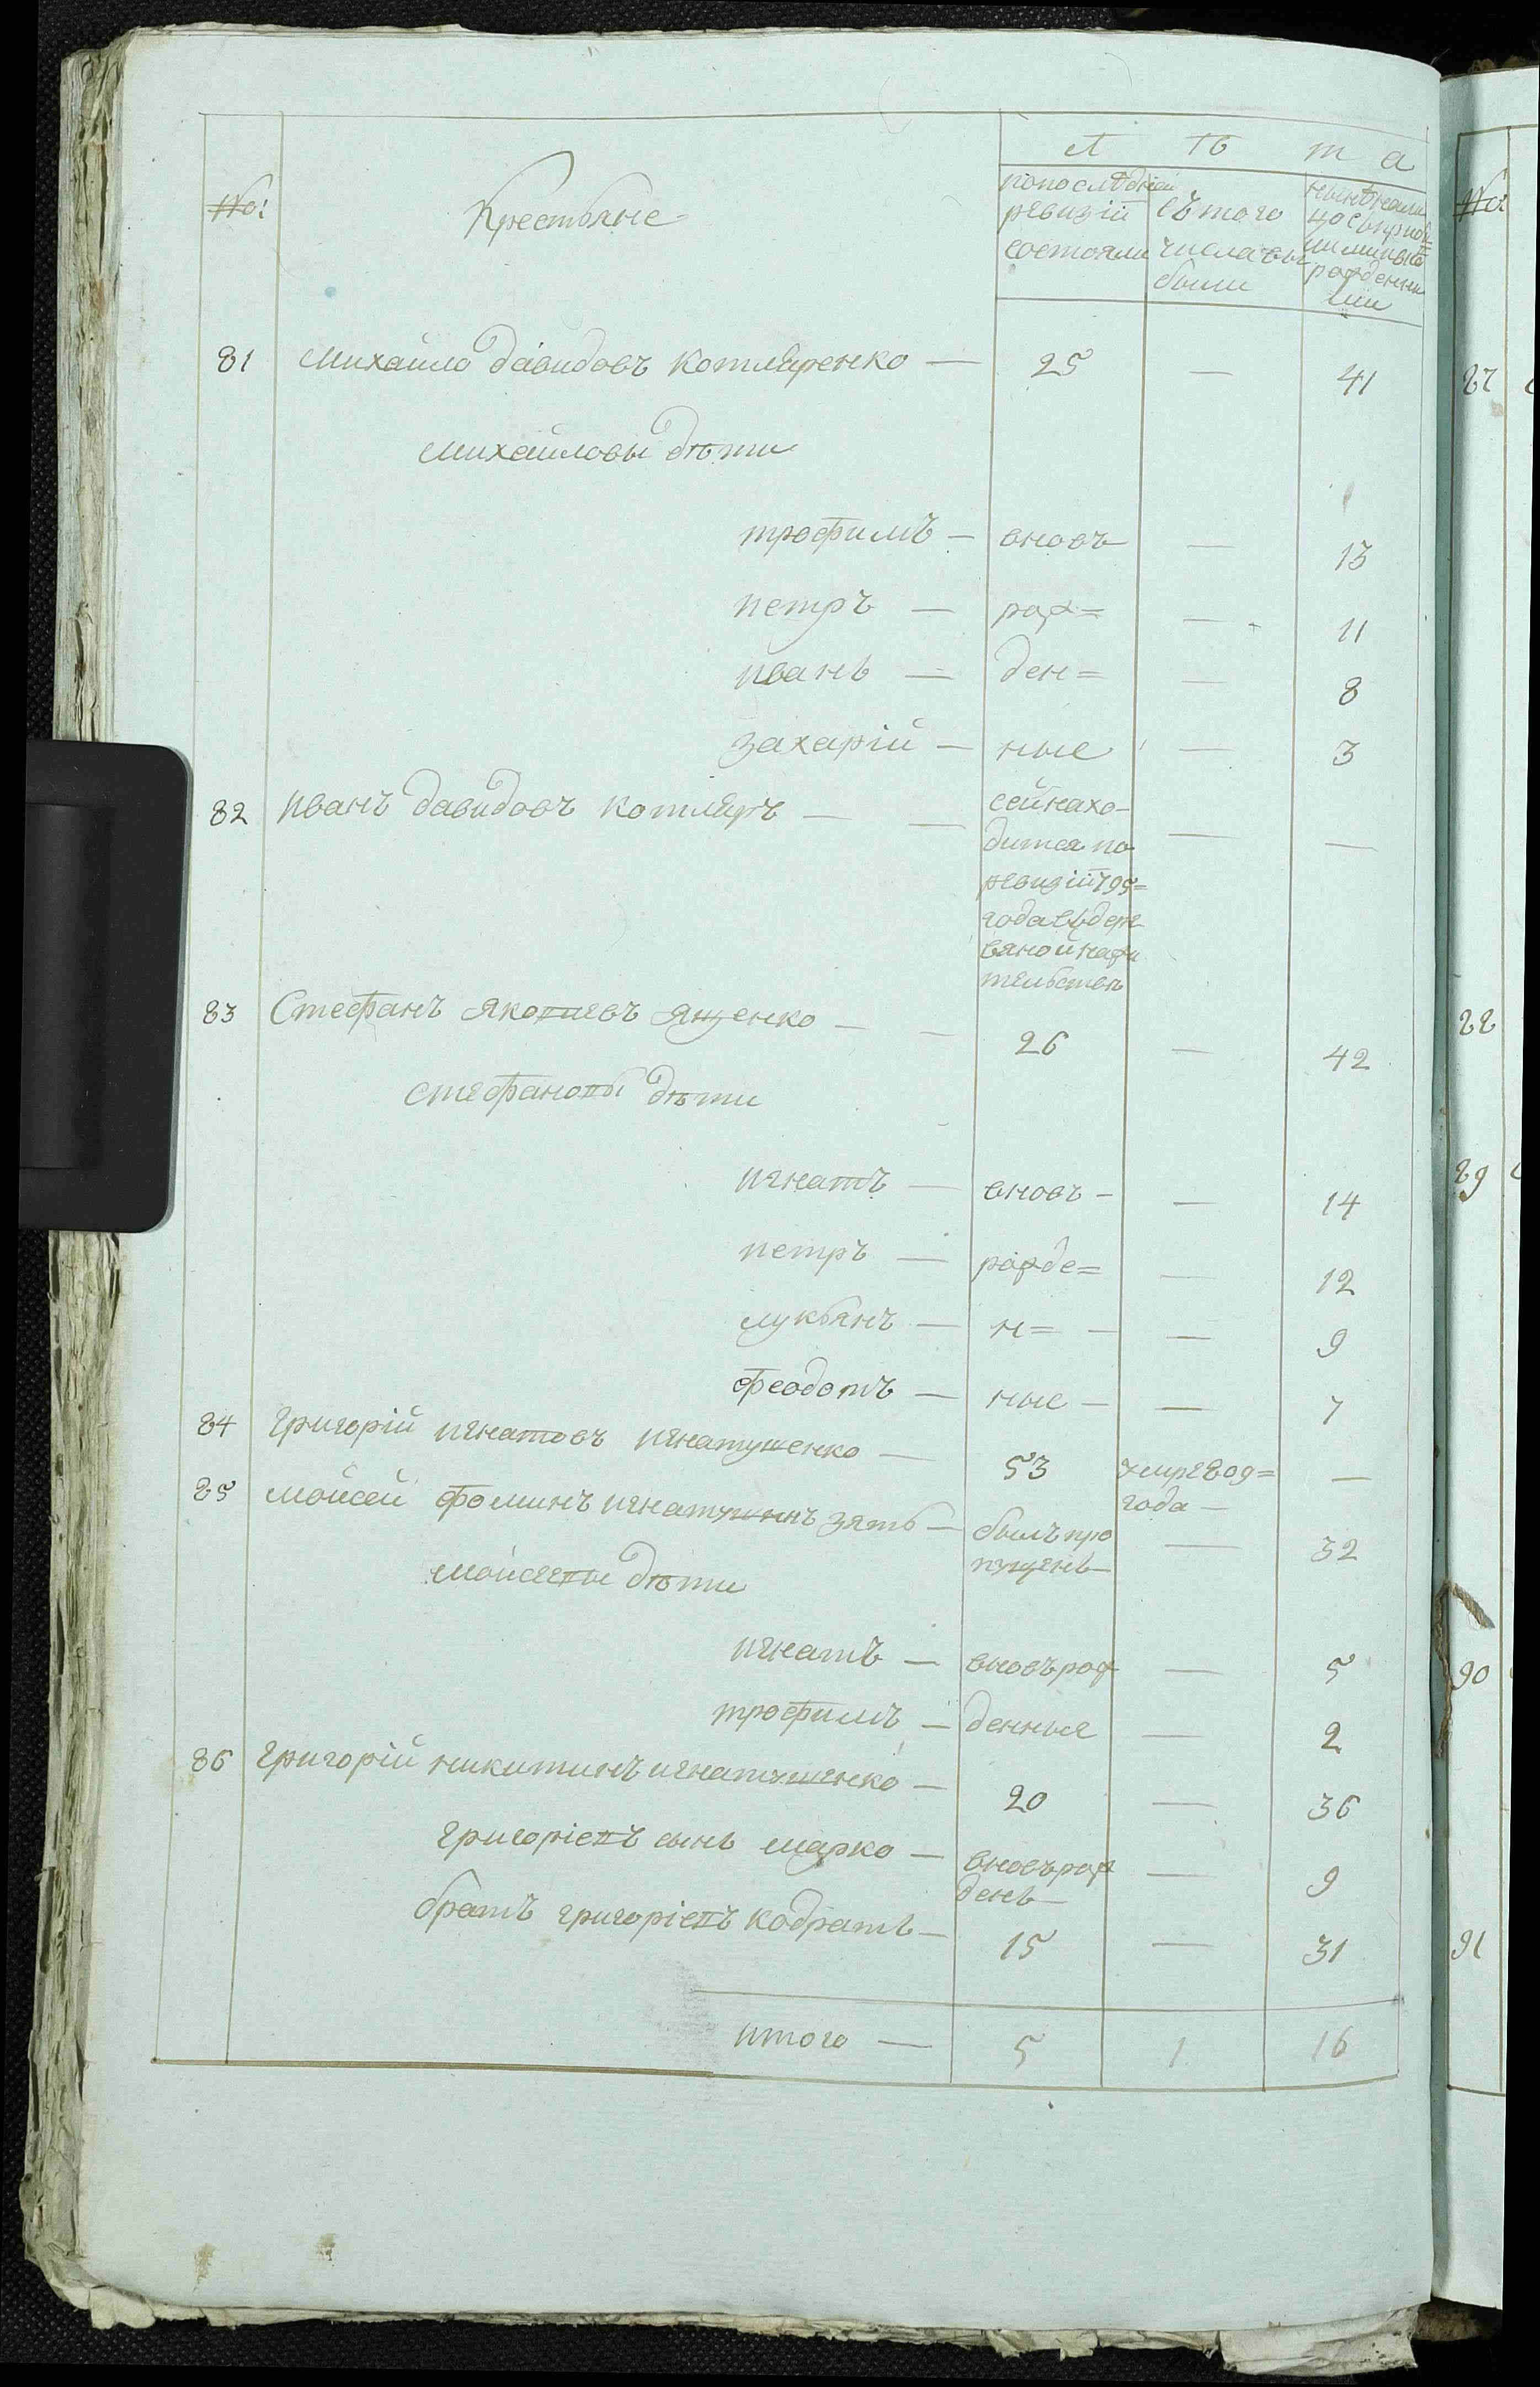 №: Крестьяне Л ѣ т а
попоследней ревизіи состояли
съ того числа выбыли
ныне налицо съприбылыми иновь рожденными
81 Михайло Давидовъ Котляренко — 25 — 41
Михайловы дѣти
трофимъ — вновъ — 13
петръ — рож= — 11
иванъ — ден= — 8
захарій — ные — 3
82 иванъ Давидовъ котляръ — — сей нахо- — —
дится по
ревизіи 795=
года
83 Стефанъ Яковлевъ Ященко — — 26 — 42
Стефановы дѣти
игнатъ — вновъ — — 14
петръ — рожде= — 12
лукьянъ — н= — — 9
феодотъ — ные — — 7
84 Григорій игнатовъ игнатушенко — 53 умре 809= —
года —
85 Мойсей фоминъ игнатушинъ зять — былъ про — 32
пущенъ —
Мойсеевы дѣти
игнатъ — вновъ рож — 5
трофимъ — денныя — 2
86 Григорій никитинъ игнатушенко — 20 — 36
григоріевъ сынъ марко — вновъ рож — 9
денъ —
братъ григоріевъ кодратъ — 15 — 31
итого — 5 1 16
№:
87
88
89
90
91